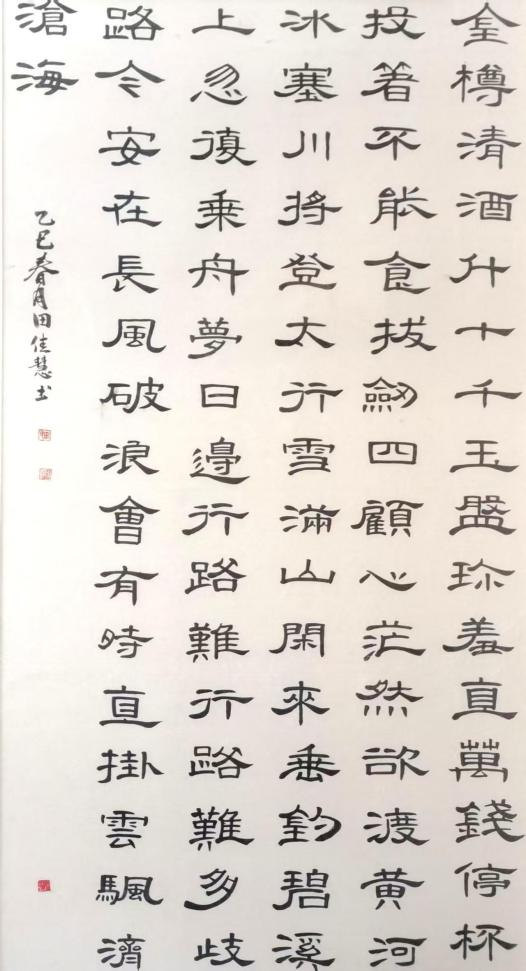 金樽清酒斗十千玉盤珎羞直萬錢停杯
投箸不能食拔劒四顧心茫然欲渡黃河
冰塞川將登太行雪滿山閑來垂釣碧溪
上忽復乘舟夢日邊行路難行路難多歧
路今安在長風破浪會有時直掛雲颿濟
滄海
乙巳春月田佳慧书